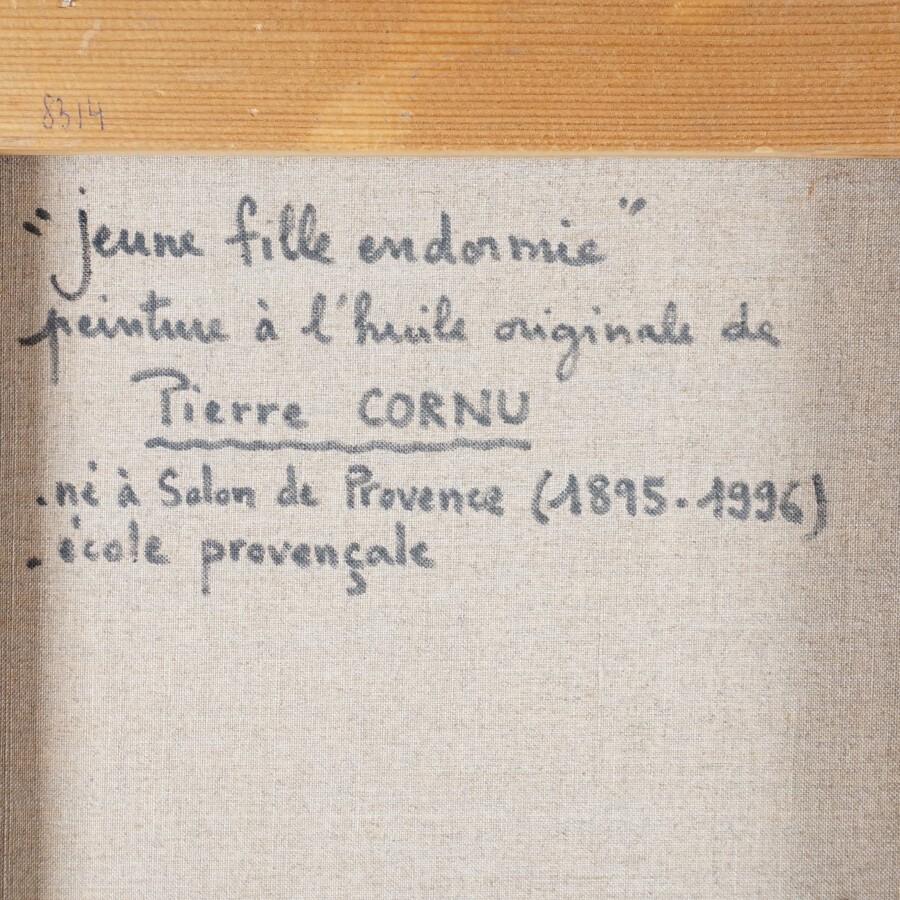 8314
"jeune fille endormie"
peinture à l'huile originale de
Pierre CORNU
.né à Salon de Provence (1895-1996)
.école provençale